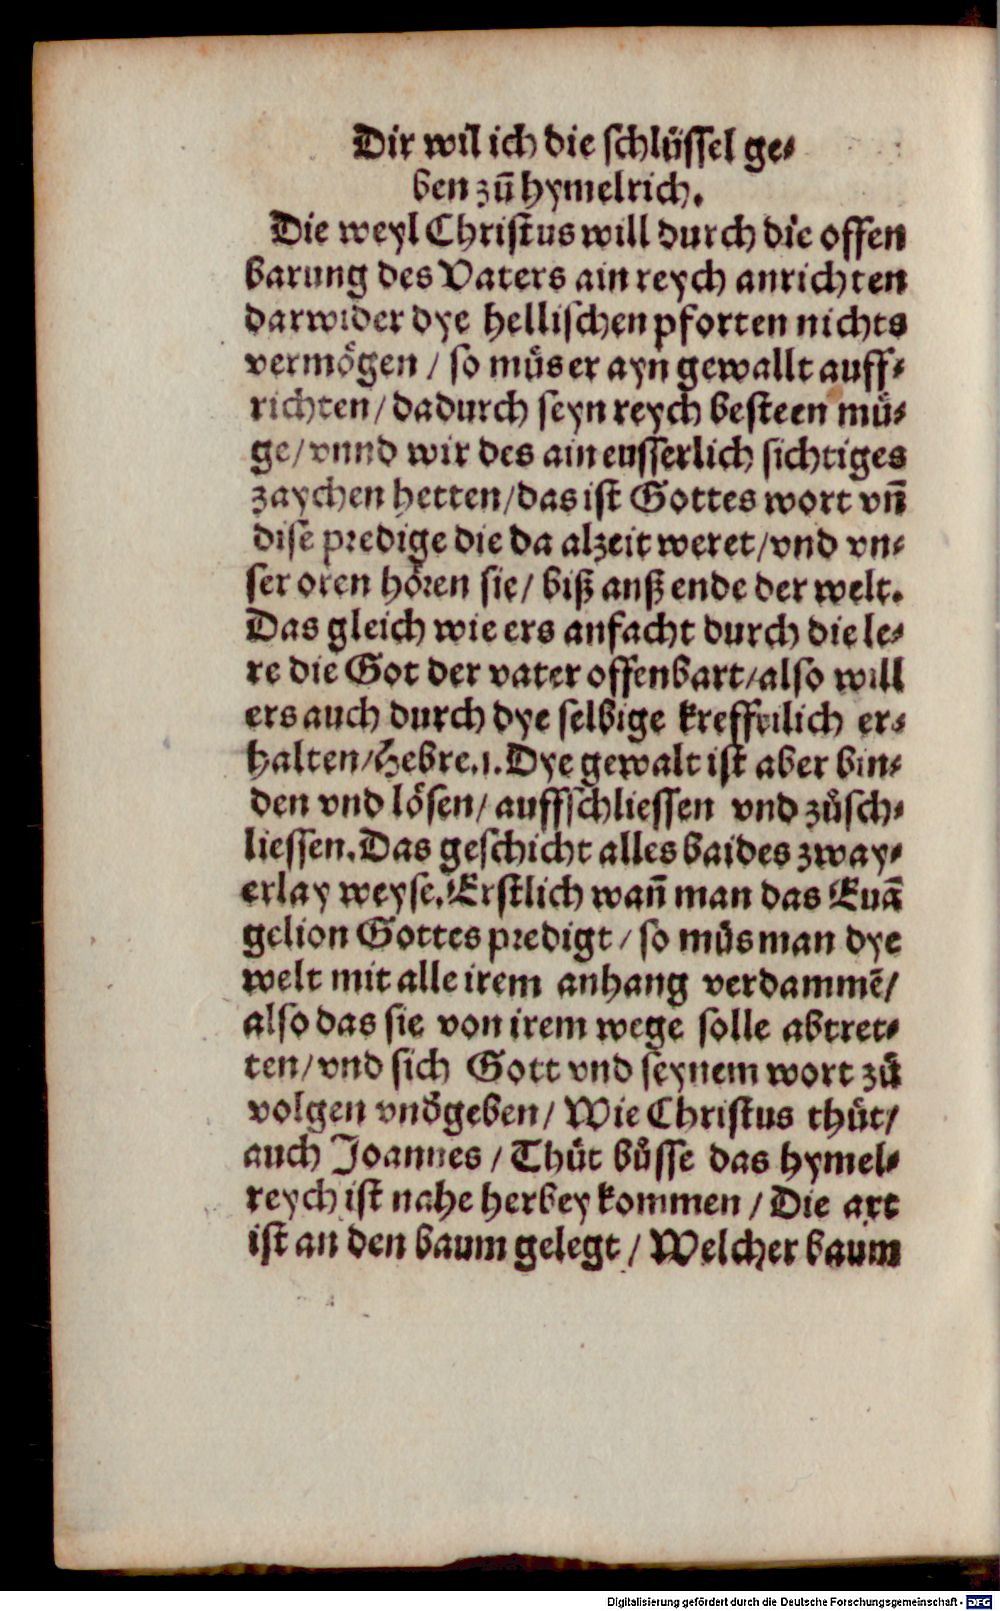 Dir wil ich die schlüssel ge⸗
ben zū hymelrich.
Die weyl Christus will durch die offen
barung des Vaters ain reych anrichten
darwider dye hellischen pforten nichts
vermögen / so müs er ayn gewallt auff⸗
richten / dadurch seyn reych besteen mü⸗
ge / vnnd wir des ain eusserlich sichtiges
zaychen hetten / das ist Gottes wort vn̄
dise predige die da alzeit weret / vnd vn⸗
ser oren hören sie / biß anß ende der welt.
Das gleich wie ers anfacht durch die le⸗
re die Got der vater offenbart / also will
ers auch durch dye selbige krefftilich er⸗
halten / Hebre.1. Dye gewalt ist aber bin⸗
den vnd lösen / auffschliessen vnd zůsch⸗
liessen. Das geschicht alles baides zway⸗
erlay weyse. Erstlich wan̄ man das Euā
gelion Gottes predigt / so müs man dye
welt mit alle irem anhang verdammē /
also das sie von irem wege solle abtret⸗
ten / vnd sich Gott vnd seynem wort zů
volgen vndgeben / Wie Christus thůt /
auch Joannes / Thůt bůsse das hymel⸗
reych ist nahe herbey kommen / Die axt
ist an den baum gelegt / Welcher baum
Digitalisierung gefördert durch die Deutsche Forschungsgemeinschaft - DFG